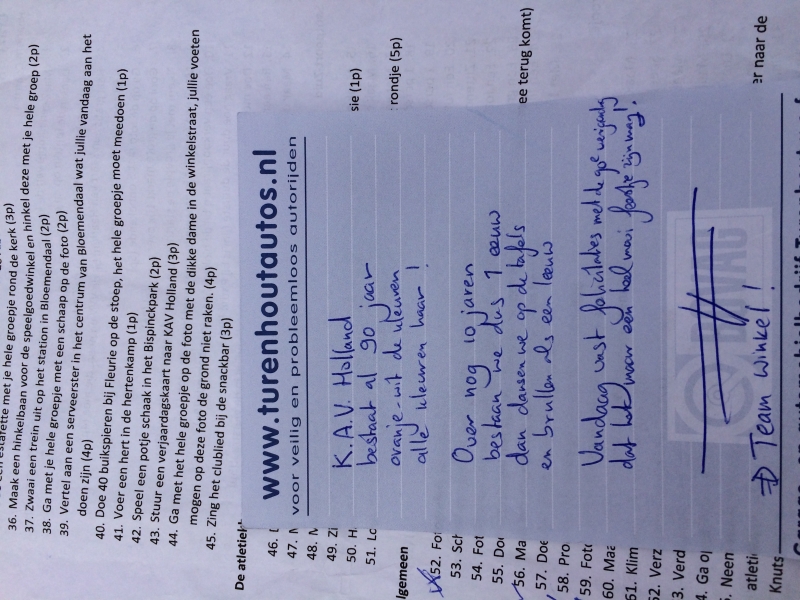 36. Maak een hinkelbaan voor de speelgoedwinkel en hinkel deze met je hele groep (2p)
37. Zwaai een trein uit op het station in Bloemendaal (2p)
38. Ga met je hele groepje met een schaap op de foto (2p)
39. Vertel aan een serveerster in het centrum van Bloemendaal wat jullie vandaag aan het
doen zijn (4p)
40. Doe 40 buikspieren bij Fleurie op de stoep, het hele groepje moet meedoen (1p)
41. Voer een hert in de hertenkamp (1p)
42. Speel een potje schaak in het Bispinckpark (2p)
43. Stuur een verjaardagskaart naar KAV Holland (3p)
44. Ga met het hele groepje op de foto met de dikke dame in de winkelstraat, jullie voeten
mogen op deze foto de grond niet raken. (4p)
45. Zing het clublied bij de snackbar (3p)
De atletiek
46.
47.
48.
49. Zi
50. H
51. Lo
sie (1p)
rondje (5p)
lgemeen
52. Fot
53. Sch
54. Fot
55. Doe
56. Ma
57. Doe
58. Pro
59. Foto
60. Maa
61. Klim
62. Verz
3. Verd
4. Ga op
Neen
atleti
Knuts
ee terug komt)
er naar de
www.turenhoutautos.nl
voor veilig en probleemloos autorijden
K.A.V. Holland
bestaat al 90 jaar
oranje-wit de kleuren
alle kleuren haar!
Over nog 10 jaren
bestaan we dus 1 eeuw
dan dansen we op de tafels
en brullen als een leeuw
Vandaag vast felicitaties met de 90e verjaardag
dat het maar een heel mooi feestje zijn mag!
Team Winkel!